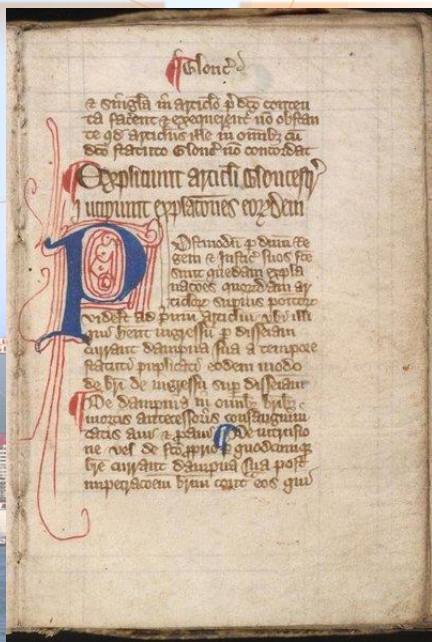 Glouc̃
& singˡla in articlo p̃dc̃o conten
ta facent & exequerent͛ nõ obstan
te qd̃ articlus ille in om̃ib; cũ
dc̃o statuto Glouc̃ nõ concordat
Expliciunt articli Gloucestr̃
⁊ incipiunt explac̃ones eoꝝdem
Ostmodũ p̃ dñm Re
gem & Justic̃ suos fc̃e
sunt quedam expla
nac̃ones quoꝝdam ar
ticloꝝ supius positoꝝ
videlt̃ ad p̃mũ articlũ vbi illi
qui hent ingressũ p disseiam
currant dampna sua a tempore
statuti puplicati eodem modo
de bri de ingressu sup disseiam
De dampnis in om̃ib; brib;
mortis antecessoris consanguini
tatis aui & p̃aui De intrusio
ne vel de fc̃o pprio quodcumq̃
bre currant dampna sua post
impetrac̃oem briũ cont̃ eos qui